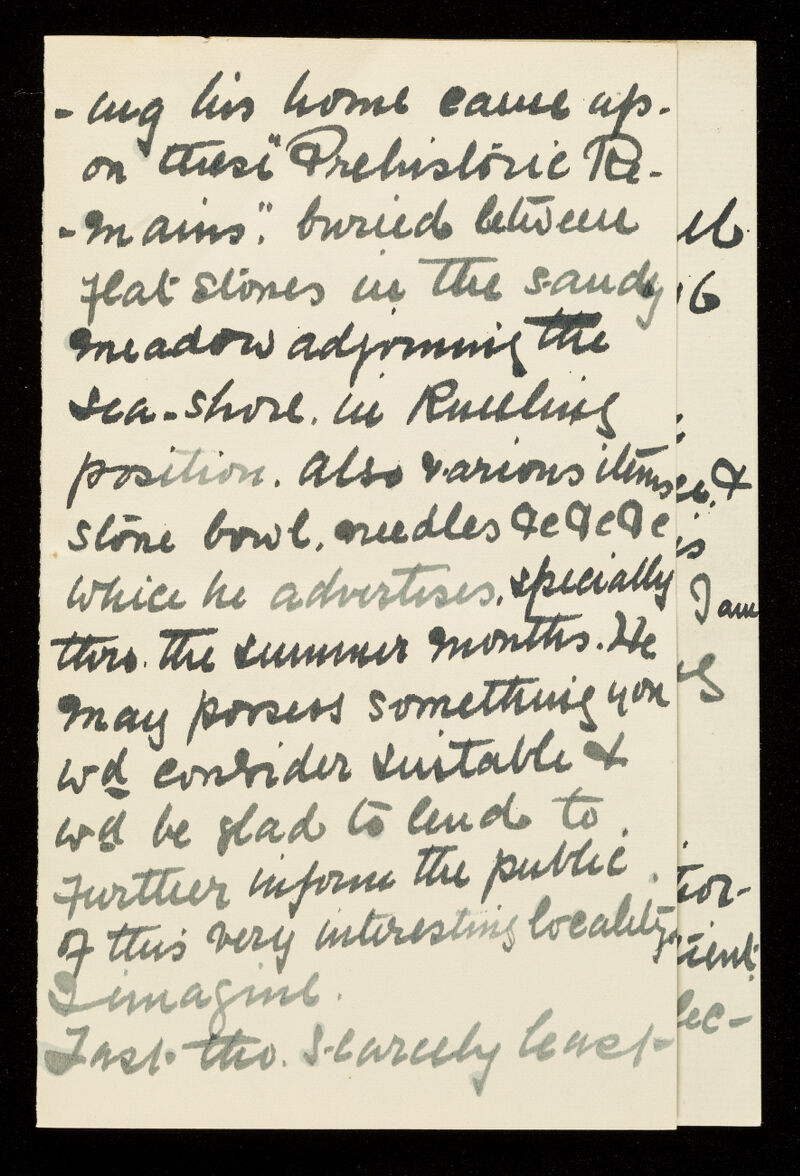 -ing his home came up-
on these "Prehistoric Re-
-mains". buried between
flat stones in the sandy
meadow adjoining the
sea-shore. in Kneeling
position. Also various items
stone bowl. needles &c &c &c
which he advertises. specially
thro. the summer months. He
may possess something you
wd consider suitable &
wd be glad to lend to
further inform the public
of this very interesting locality
I imagine.
Last. tho. scarcely least-
16
&
is
I am
tor-
ient
lec-